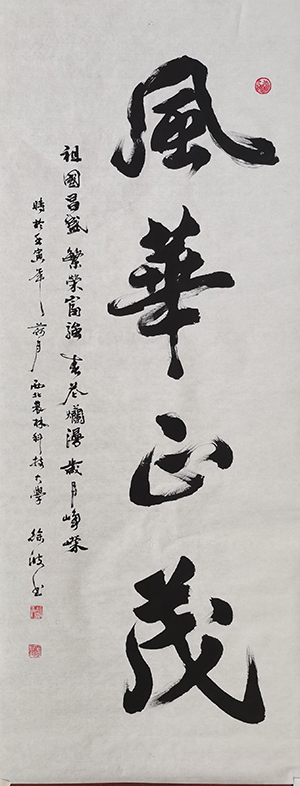 風華正茂
祖國昌盛 繁榮富強 春花爛漫 歲月崢嶸
時於壬寅年 月 西北農林科技大學 徐波书